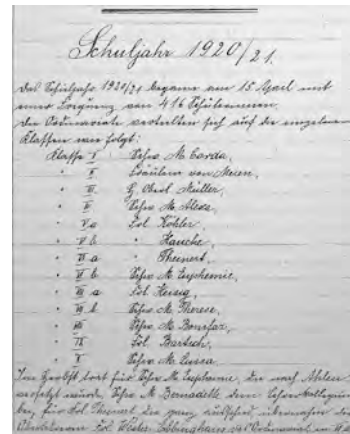 Schuljahr 1920/21.
Das Schuljahr 1920/21 begann am 15. April mit
einer Frequenz von 416 Schülerinnen.
Die Ordinariate verteilten sich auf die einzelnen
Klassen wie folgt:
Klasse I Schw. M. Corda,
" II Fräulein von Meien,
" III H. Oberl. Müller,
" IV Schw. M. Alexa,
" V a Frl. Köhler,
" V b " Hauche,
" VI a " Theinert,
" VI b Schw. M. Euphemie,
" VII a Frl. Heisig,
" VII b Schw. M. Therese,
" VIII Schw. M. Bonifaz,
" IX Frl. Bartsch,
" X Schw. M.
Im Herbst trat für Schw. M. Euphemie, die nach Ahlen
versetzt wurde, Schw. M. Bernadette dem Lehrerkollegium
bei, für Frl. Theinert, die ganz, übernahm die
Oberlehrerin Frl. Ebbinghaus das Ordinariat in VI a